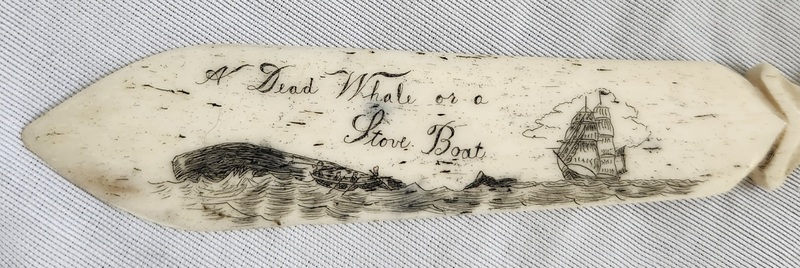 A Dead Whale or a
Stove Boat